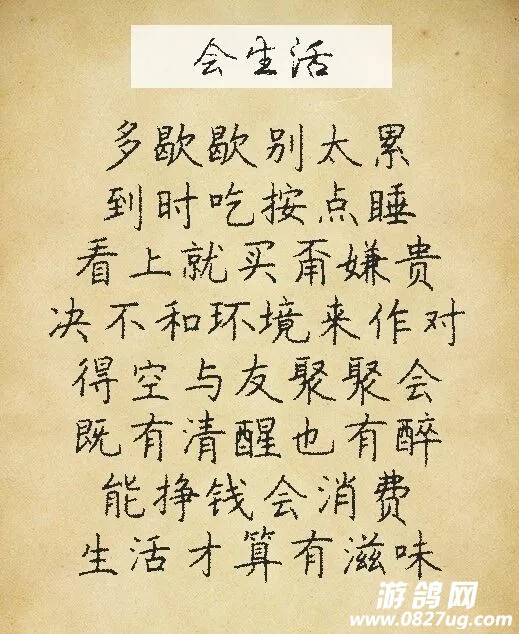 会生活
多歇歇别太累
到时吃按点睡
看上就买甭嫌贵
决不和环境来作对
得空与友聚聚会
既有清醒也有醉
能挣钱会消费
生活才算有滋味
游鸽网
www.0827ug.com